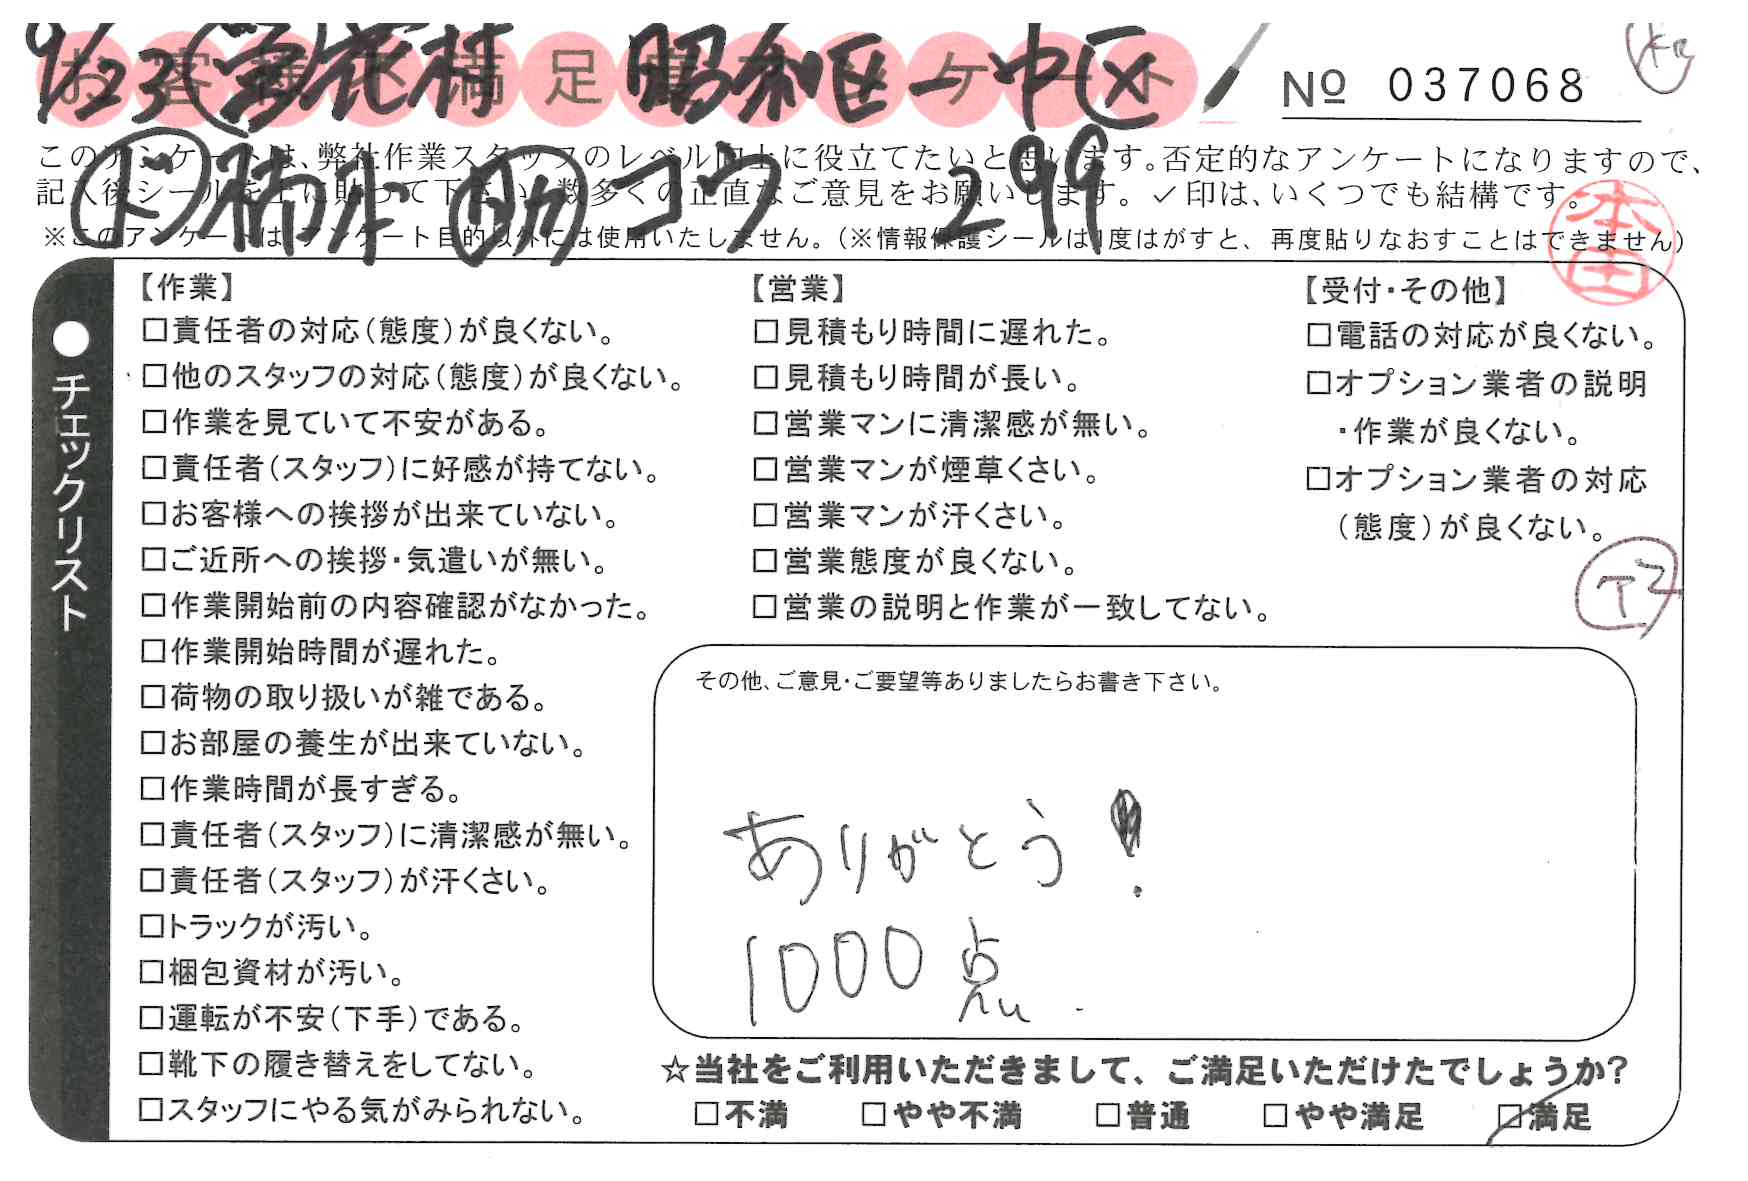 9/23 様 昭和区→中区
お客様不満足度アンケート
No 037068
ド 楠本 助 コウ 299
このアンケートは、弊社作業スタッフのレベル向上に役立てたいと思います。否定的なアンケートになりますので、
記入後シールを上に貼って下さい。数多くの正直なご意見をお願いします。✓印は、いくつでも結構です。
※このアンケートは、アンケート目的以外には使用いたしません。(※情報保護シールは1度はがすと、再度貼りなおすことはできません)
本田
●チェックリスト
【作業】
□責任者の対応(態度)が良くない。
□他のスタッフの対応(態度)が良くない。
□作業を見ていて不安がある。
□責任者(スタッフ)に好感が持てない。
□お客様への挨拶が出来ていない。
□ご近所への挨拶・気遣いが無い。
□作業開始前の内容確認がなかった。
□作業開始時間が遅れた。
□荷物の取り扱いが雑である。
□お部屋の養生が出来ていない。
□作業時間が長すぎる。
□責任者(スタッフ)に清潔感が無い。
□責任者(スタッフ)が汗くさい。
□トラックが汚い。
□梱包資材が汚い。
□運転が不安(下手)である。
□靴下の履き替えをしてない。
□スタッフにやる気がみられない。
【営業】
□見積もり時間に遅れた。
□見積もり時間が長い。
□営業マンに清潔感が無い。
□営業マンが煙草くさい。
□営業マンが汗くさい。
□営業態度が良くない。
□営業の説明と作業が一致してない。
【受付・その他】
□電話の対応が良くない。
□オプション業者の説明
・作業が良くない。
□オプション業者の対応
(態度)が良くない。
その他、ご意見・ご要望等ありましたらお書き下さい。
ありがとう!
1000点.
☆当社をご利用いただきまして、ご満足いただけたでしょうか?
□不満 □やや不満 □普通 □やや満足 □満足